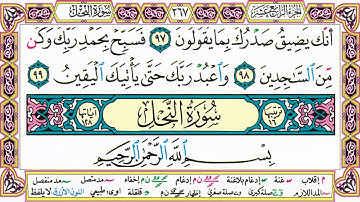 سورة النحل ٢٦٧ الجزء الرابع عشر
أَنَّكَ يَضِيقُ صَدْرُكَ بِمَا يَقُولُونَ ٩٧ فَسَبِّحْ بِحَمْدِ رَبِّكَ وَكُن
مِّنَ السَّاجِدِينَ ٩٨ وَاعْبُدْ رَبَّكَ حَتَّىٰ يَأْتِيَكَ الْيَقِينُ ٩٩
سُورَةُ النَّحْلِ
بِسْمِ اللَّهِ الرَّحْمَٰنِ الرَّحِيمِ